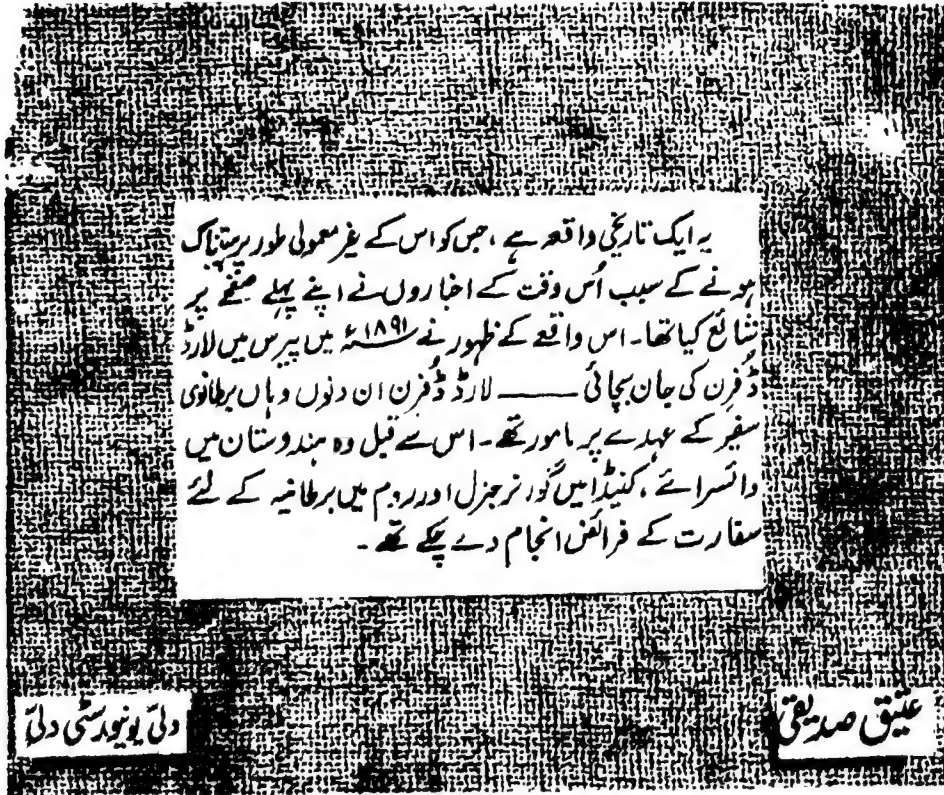 یہ ایک تاریخی واقعہ ہے، جس کو اس کے غیر معمولی طور پر ہیبتناک
ہونے کے سبب اُس وقت کے اخباروں نے اپنے پہلے صفحے پر
شائع کیا تھا۔ اس واقعے کے ظہور نے ۱۸۹۱ء میں پیرس میں لارڈ
ڈفرن کی جان بچائی ——— لارڈ ڈفرن ان دنوں وہاں برطانوی
سفیر کے عہدے پر مامور تھے۔ اس سے قبل وہ ہندوستان میں
وائسرائے، کنیڈا میں گورنر جنرل اور روم میں برطانیہ کے لئے
سفارت کے فرائض انجام دے چکے تھے۔
عتیق صدیقی
دلّی یونیورسٹی دلّی